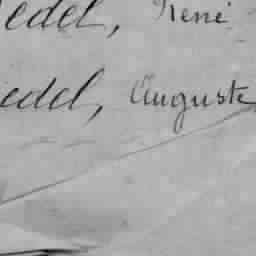 edel, René
edel, Auguste